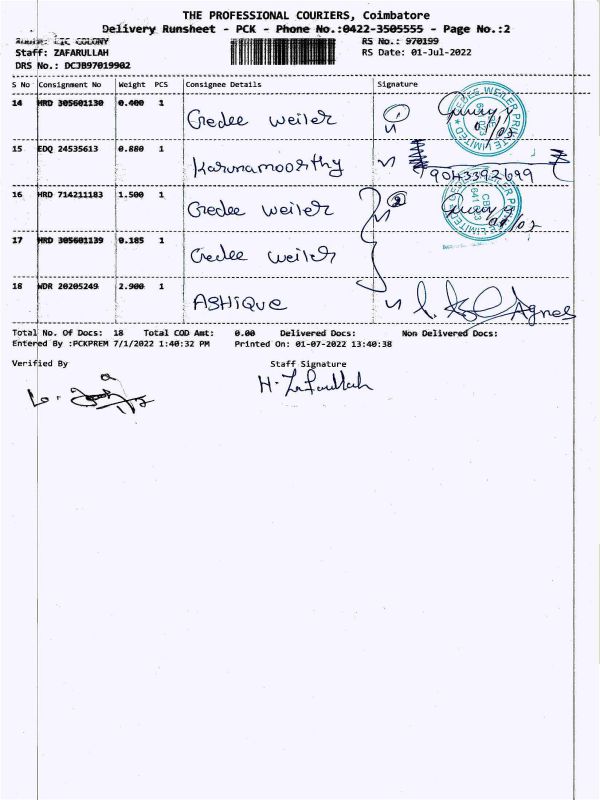 THE PROFESSIONAL COURIERS, Coimbatore
Delivery Runsheet - PCK - Phone No.:0422-3505555 - Page No.:2
LIC COLONY
RS No.: 970199
Staff: ZAFARULLAH
RS Date: 01-Jul-2022
DRS No.: DCJB97019902
S No Consignment No Weight PCS Consignee Details Signature
14 HRD 305601130 0.400 1 Gedee weiler 1
15 EDQ 24535613 0.880 1 Karunamoorthy 9043392699
16 HRD 714211183 1.500 1 Gedee weiler 2
17 HRD 305601139 0.185 1 Gedee weiler
18 WDR 20205249 2.900 1 ASHIQUE Agnes
Total No. Of Docs: 18 Total COD Amt: 0.00 Delivered Docs: Non Delivered Docs:
Entered By :PCKPREM 7/1/2022 1:40:32 PM Printed On: 01-07-2022 13:40:38
Verified By Staff Signature
H. Zafarullah